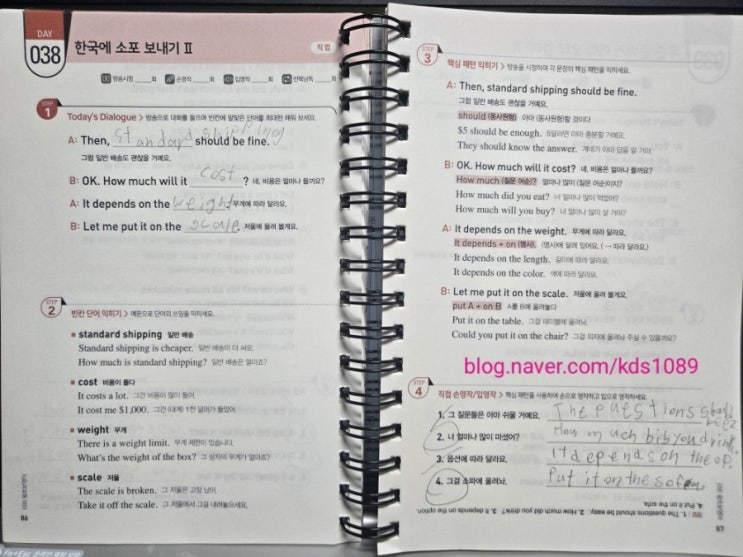 DAY
038
한국에 소포 보내기 II
직업
방송시청 ___회 손영작 ___회 입영작 ___회 반복낭독 ___회
STEP 1
Today's Dialogue > 방송으로 대화를 들으며 빈칸에 알맞은 단어를 최대한 채워 보세요.
A: Then, standard shipping should be fine.
그럼 일반 배송도 괜찮을 거예요.
B: OK. How much will it cost ? 네, 비용은 얼마나 들까요?
A: It depends on the weight. 무게에 따라 달라요.
B: Let me put it on the scale. 저울에 올려 볼게요.
STEP 2
빈칸 단어 익히기 > 예문으로 단어의 쓰임을 익히세요.
standard shipping 일반 배송
Standard shipping is cheaper. 일반 배송이 더 싸요.
How much is standard shipping? 일반 배송은 얼마죠?
cost 비용이 들다
It costs a lot. 그건 비용이 많이 들어.
It cost me $1,000. 그건 (내게) 천 달러가 들었어.
weight 무게
There is a weight limit. 무게 제한이 있습니다.
What's the weight of the box? 그 상자의 무게가 얼마죠?
scale 저울
The scale is broken. 그 저울은 고장 났어.
Take it off the scale. 그 저울에서 그걸 내려놓으세요.
86
STEP 3
핵심 패턴 익히기 > 방송을 시청하며 각 문장의 핵심 패턴을 익히세요.
A: Then, standard shipping should be fine.
그럼 일반 배송도 괜찮을 거예요.
should (동사원형) 아마 (동사원형)할 것이다
$5 should be enough. 5달러면 아마 충분할 거예요.
They should know the answer. 걔네가 아마 답을 알 거야.
B: OK. How much will it cost? 네, 비용은 얼마나 들까요?
How much (질문 어순)? 얼마나 많이 (질문 어순)이지?
How much did you eat? 너 얼마나 많이 먹었어?
How much will you buy? 너 얼마나 많이 살 거야?
A: It depends on the weight. 무게에 따라 달라요.
It depends + on (명사). (명사)에 달려 있어요. (→ 따라 달라요.)
It depends on the length. 길이에 따라 달라요.
It depends on the color. 색에 따라 달라요.
B: Let me put it on the scale. 저울에 올려 볼게요.
put A + on B A를 B에 올려놓다
Put it on the table. 그걸 테이블에 올려놔.
Could you put it on the chair? 그걸 의자에 올려놔 주실 수 있을까요?
blog.naver.com/kds1089
STEP 4
직접 손영작/입영작 > 핵심 패턴을 사용하여 손으로 영작하고 입으로 영작하세요.
1. 그 질문들은 아마 쉬울 거예요. The questions
2. 너 얼마나 많이 마셨어? How much bib you drink.
3. 옵션에 따라 달라요. It depends on the op.
4. 그걸 소파에 올려놔. Put it on the sofa
정답 | 1. The questions should be easy. 2. How much did you drink? 3. It depends on the option.
4. Put it on the sofa.
87